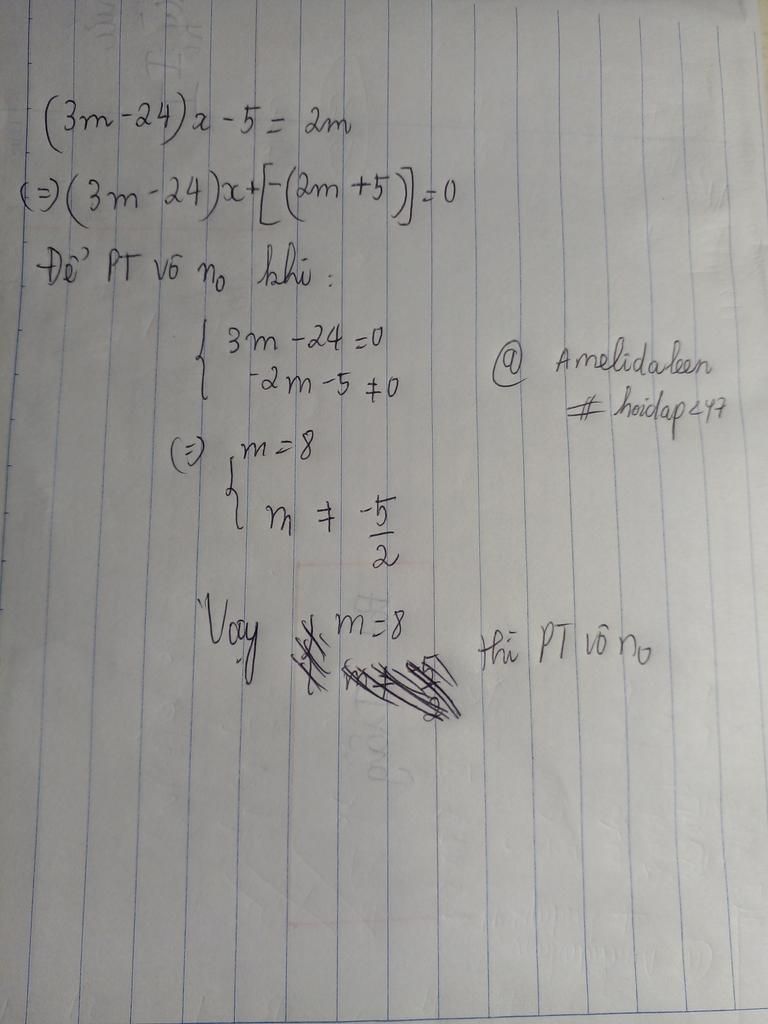 (3m-24)x - 5 = 2m
(=) (3m-24)x+[-(2m+5)]=0
Để PT vô n₀ khi :
{ 3m - 24 = 0
-2m - 5 ≠ 0
@ Amelidaleen
# hoidap247
(=) { m = 8
m ≠ -5/2
Vậy m = 8 thì PT vô n₀